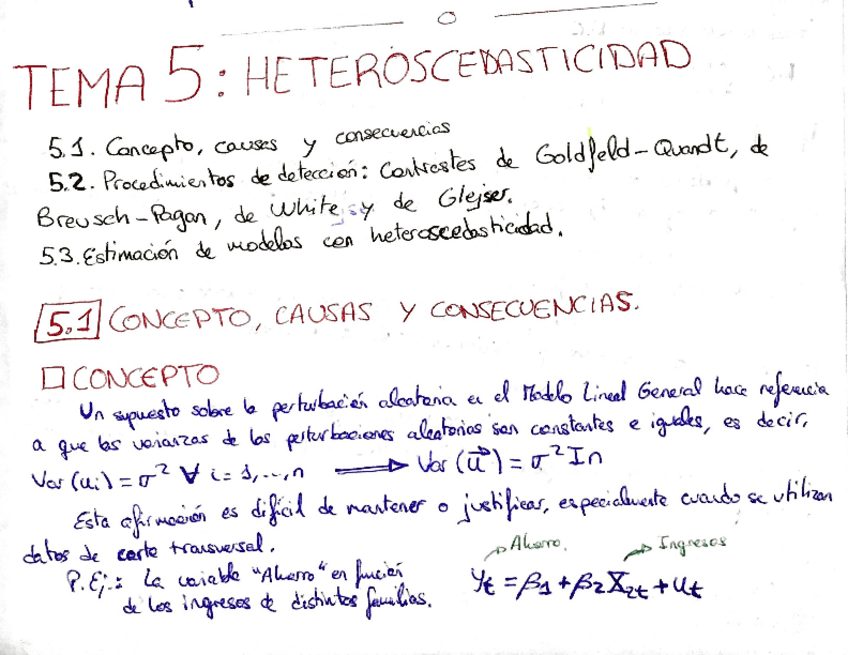 TEMA 5: HETEROSCEDASTICIDAD
5.1. Concepto, causas y consecuencias
5.2. Procedimientos de detección: Contrastes de Goldfeld-Quandt, de
Breusch-Pagan, de White y de Glejser.
5.3. Estimación de modelos con heteroscedasticidad.
5.1 CONCEPTO, CAUSAS Y CONSECUENCIAS.
□ CONCEPTO
Un supuesto sobre la perturbación aleatoria en el Modelo Lineal General hace referencia
a que las varianzas de las perturbaciones aleatorias son constantes e iguales, es decir,
Var (ui) = σ² ∀ i = 1,...,n → Var (u⃗) = σ² In
Esta afirmación es difícil de mantener o justificar, especialmente cuando se utilizan
datos de corte transversal.
→ Ahorro. → Ingresos
P. Ej.: La variable "Ahorro" en función
de los ingresos de distintas familias.
Yt = β1 + β2 X2t + ut